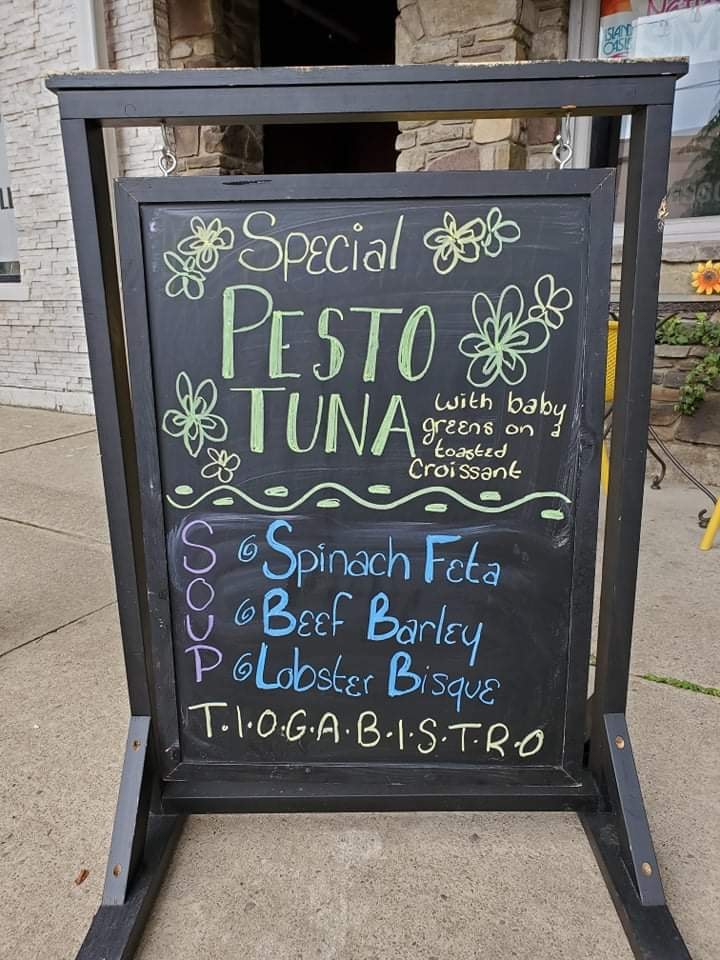 Special
PESTO
TUNA
with baby
greens on a
toasted
Croissant
SOUP
Spinach Feta
Beef Barley
Lobster Bisque
T.I.O.G.A.B.I.S.T.R.O
ISLAND
OASIS